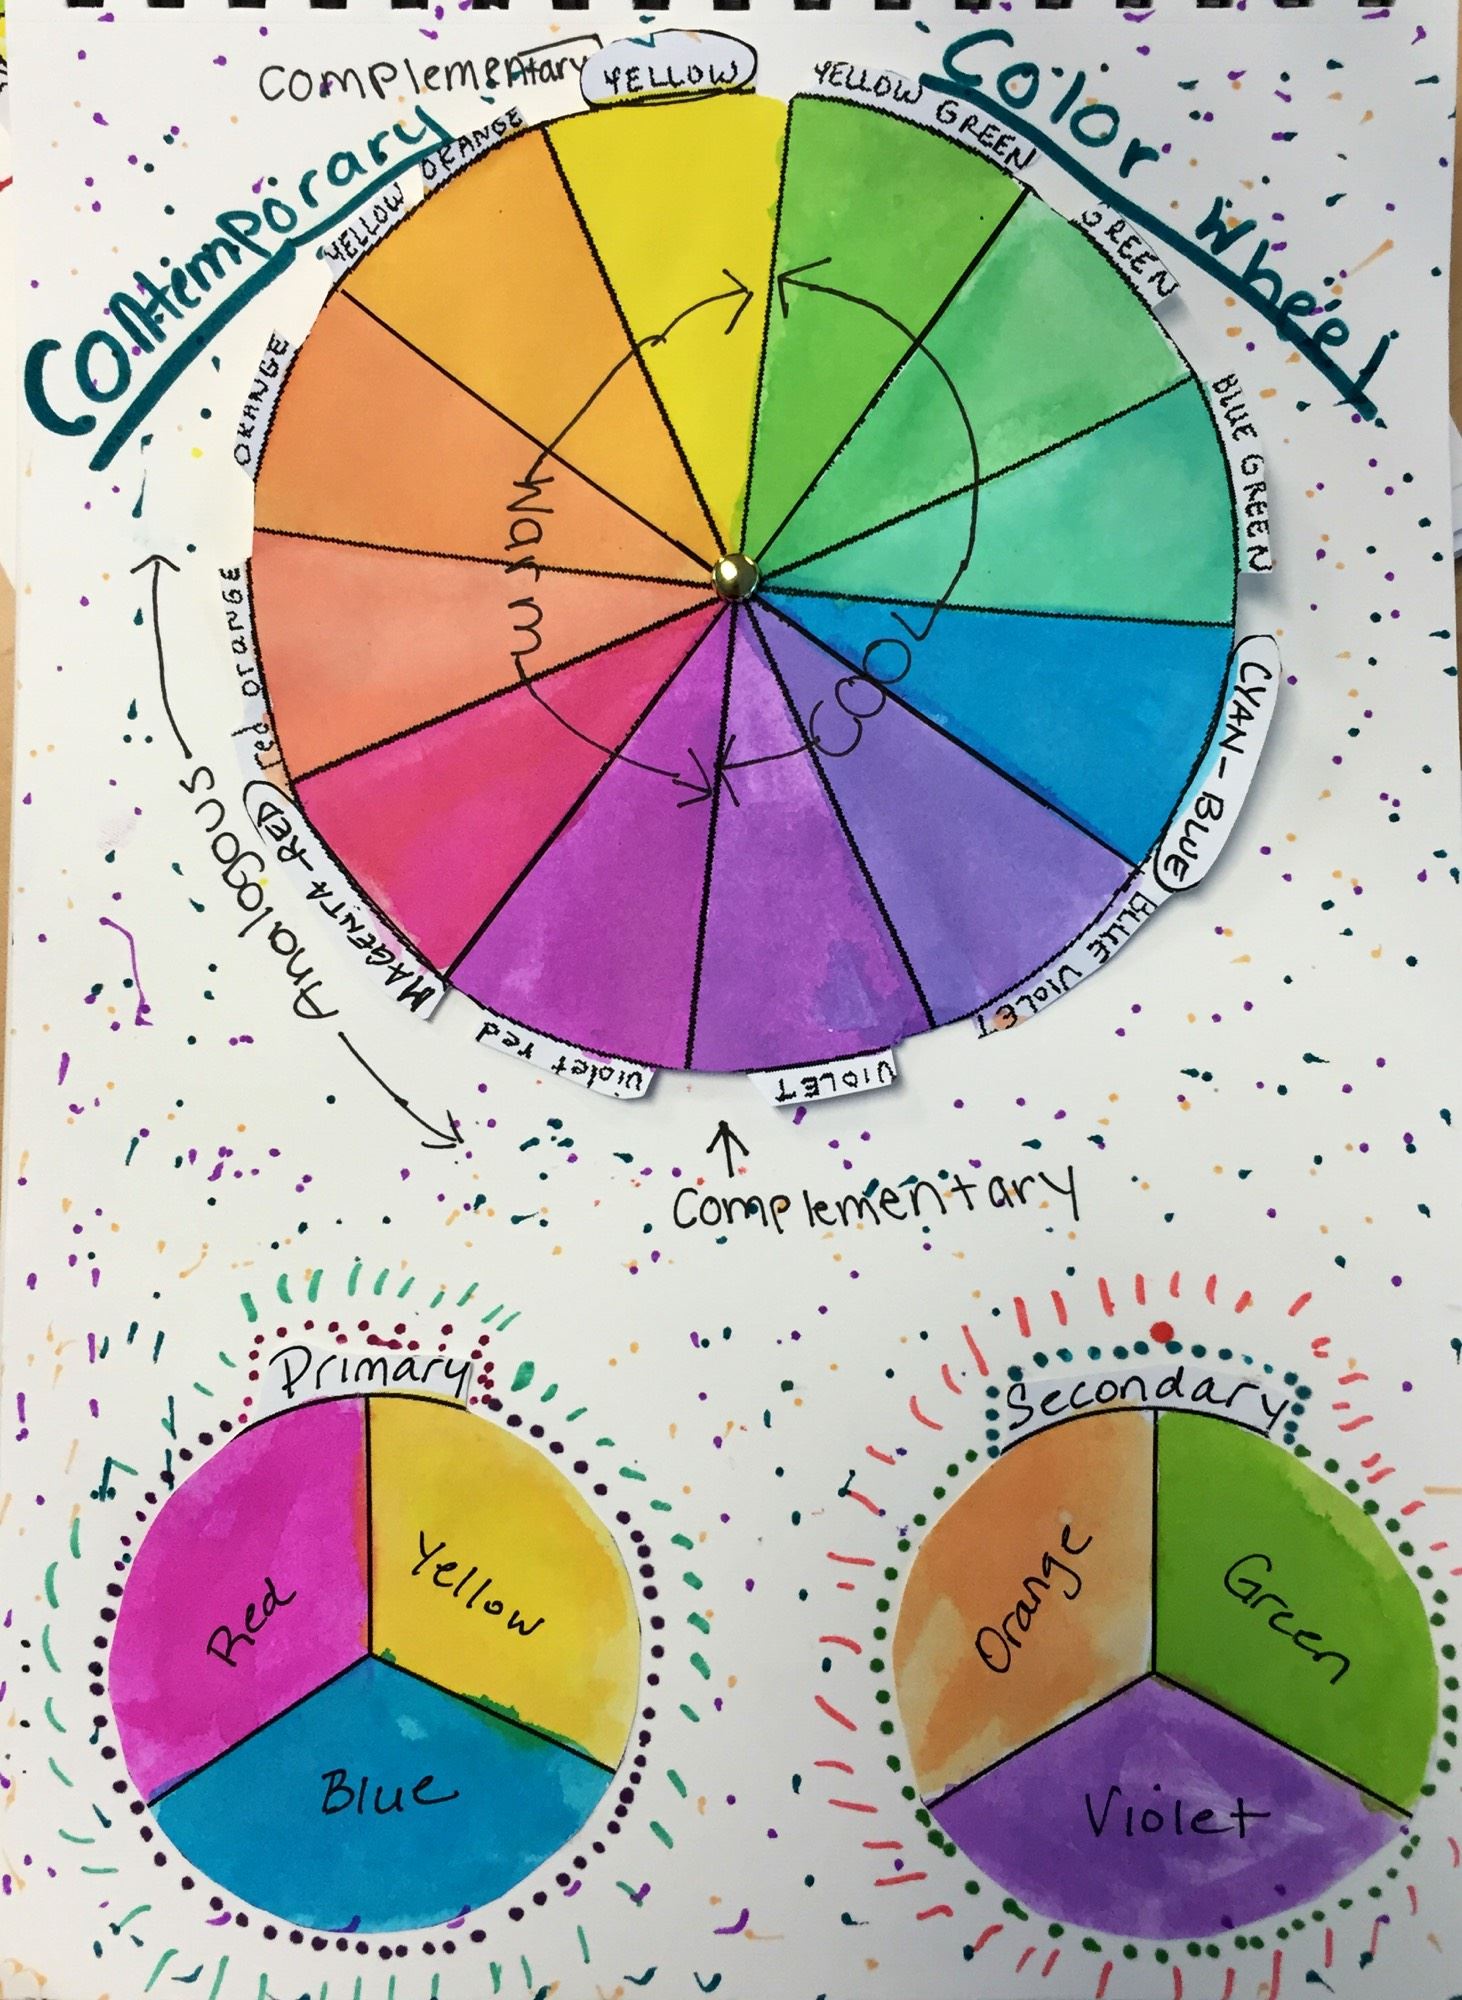 Contemporary
Color Wheel
Complementary
YELLOW
YELLOW GREEN
GREEN
BLUE GREEN
CYAN - BLUE
BLUE VIOLET
VIOLET
violet red
MAGENTA - RED
red orange
ORANGE
YELLOW ORANGE
Warm
COOL
Analogous
Complementary
Primary
Red
Yellow
Blue
Secondary
Orange
Green
Violet